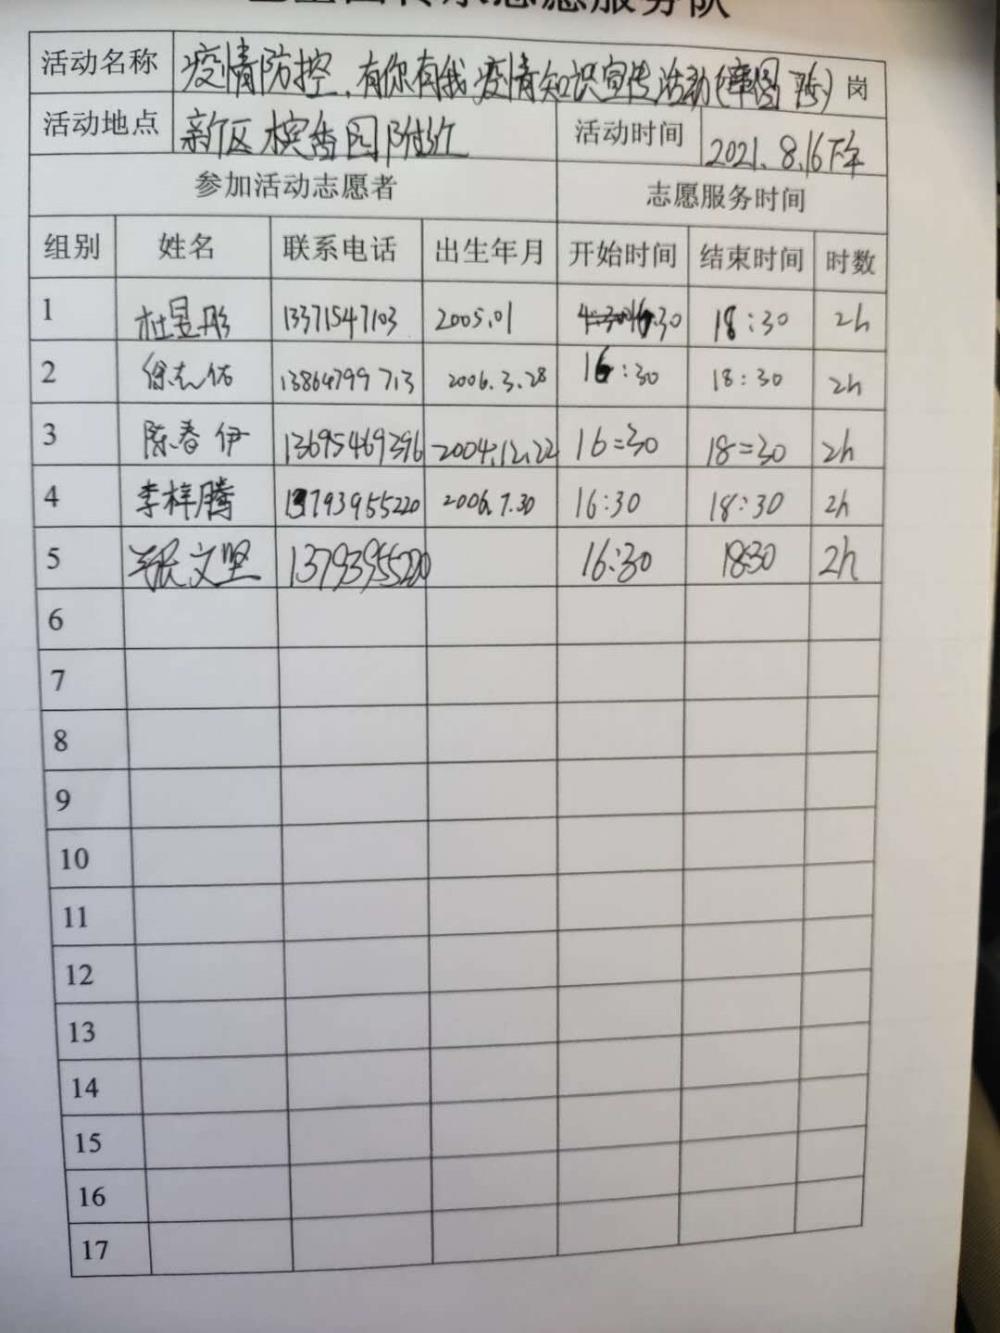 志愿服务队
活动名称 疫情防控,有你有我 疫情知识宣传活动 岗
活动地点 新区槟香园附近 活动时间 2021.8.16下午
参加活动志愿者 志愿服务时间
组别 姓名 联系电话 出生年月 开始时间 结束时间 时数
1 杜昱彤 13371547103 2005.01 16:30 18:30 2h
2 徐志佑 13864799713 2006.3.28 16:30 18:30 2h
3 陈春伊 13695469396 2004.12.22 16=30 18=30 2h
4 李梓腾 13793955220 2006.7.30 16:30 18:30 2h
5 张文坚 13793955220 16:30 1830 2h
6
7
8
9
10
11
12
13
14
15
16
17